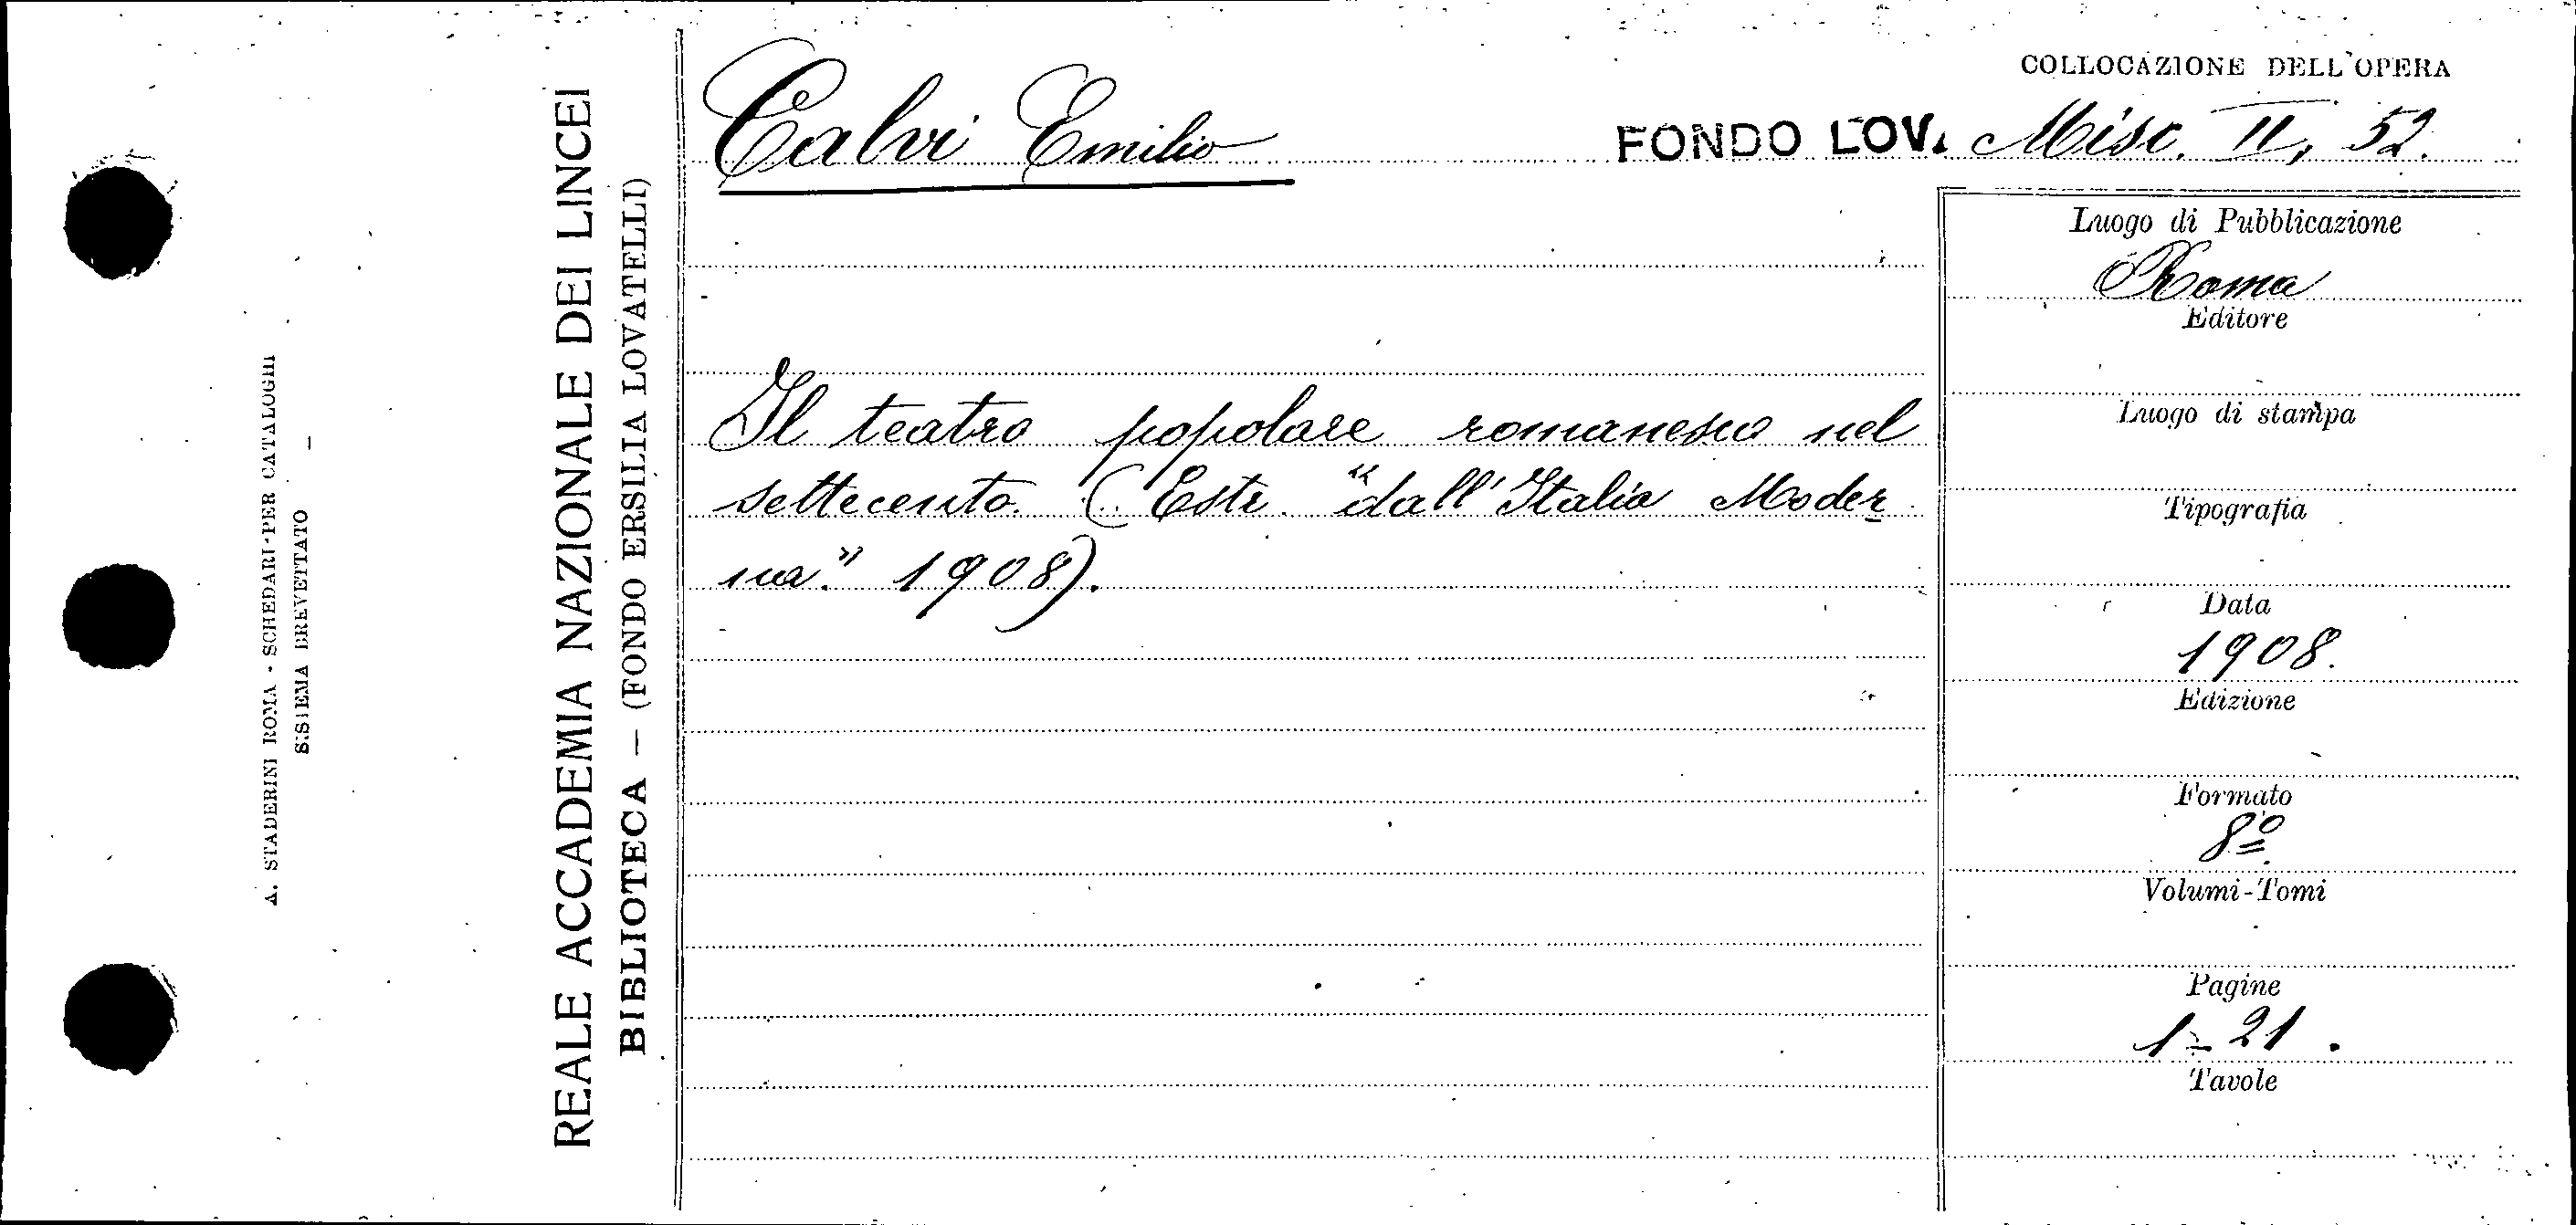 A. STADERINI ROMA - SCHEDARI PER CATALOGHI
SISTEMA BREVETTATO —
REALE ACCADEMIA NAZIONALE DEI LINCEI
BIBLIOTECA — (FONDO ERSILIA LOVATELLI)
COLLOCAZIONE DELL'OPERA
Calvi Emilio FONDO LOV. Misc. II, 52.
Il teatro popolare romanesco nel
settecento. (Estr. "dall'Italia Moder
na." 1908).
Luogo di Pubblicazione
Roma
Editore
Luogo di stampa
Tipografia
Data
1908.
Edizione
Formato
8º
Volumi-Tomi
Pagine
1-21.
Tavole